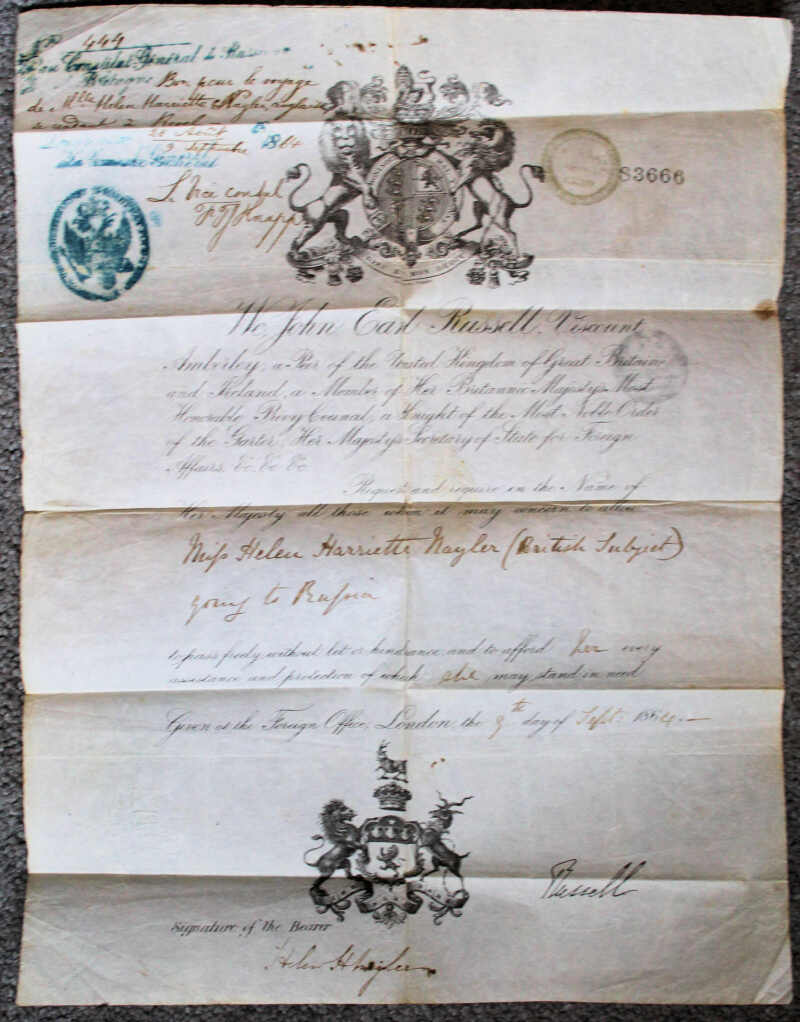 444
Consulat Général de Russie
Bretagne Bon pour le voyage
de Mlle Helen Harriette Nayler, anglaise
se rendant à Revel
Août
Septembre 1864
Le Vice consul
83666
We, John Earl Russell, Viscount
Amberley, a Peer of the United Kingdom of Great Britain
and Ireland, a Member of Her Britannic Majesty's Most
Honorable Privy Council, a Knight of the Most Noble Order
of the Garter, Her Majesty's Secretary of State for Foreign
Affairs, &c. &c. &c.
Request and require in the Name of
Her Majesty all those whom it may concern to allow
Miss Helen Harriette Nayler (British Subject)
going to Russia
to pass freely, without let or hindrance, and to afford her every
assistance and protection of which she may stand in need
Given at the Foreign Office, London, the 9th day of Sept: 1864.—
Russell
Signature of the Bearer
Helen H Nayler